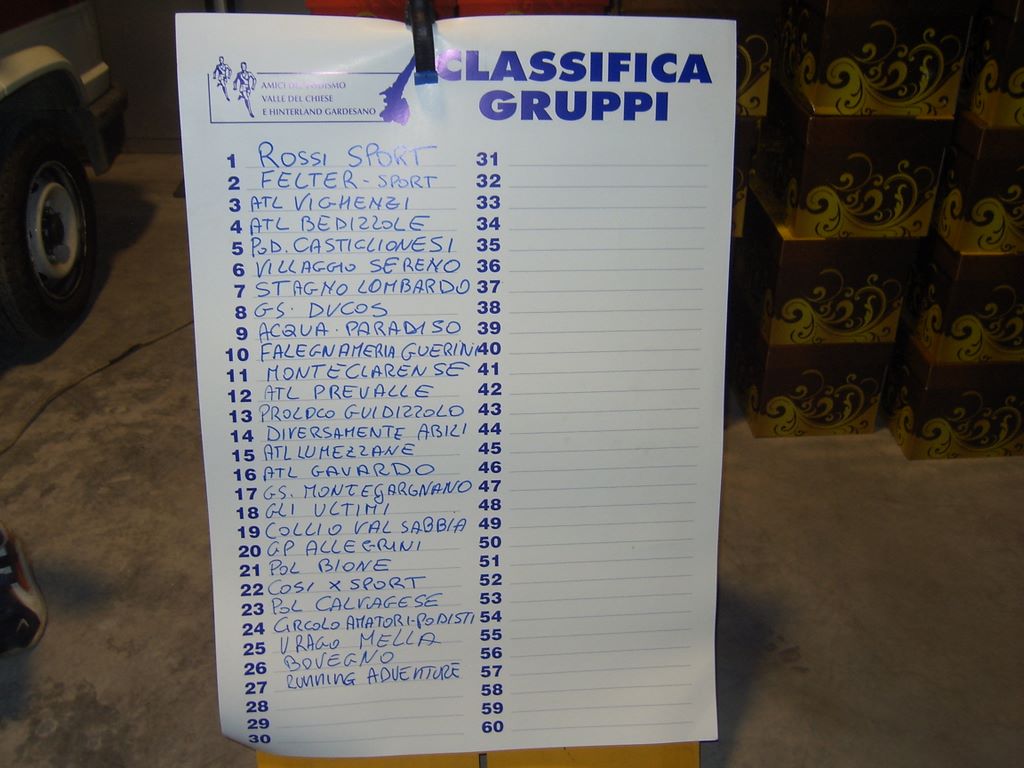 CLASSIFICA
GRUPPI
AMICI DEL PODISMO
VALLE DEL CHIESE
E HINTERLAND GARDESANO
1 ROSSI SPORT
2 FELTER-SPORT
3 ATL VIGHENZI
4 ATL BEDIZZOLE
5 POD. CASTIGLIONESI
6 VILLAGGIO SERENO
7 STAGNO LOMBARDO
8 GS. DUCOS
9 ACQUA. PARADISO
10 FALEGNAMERIA GUERINI
11 MONTECLARENSE
12 ATL PREVALLE
13 PROLOCO GUIDIZZOLO
14 DIVERSAMENTE ABILI
15 ATL LUMEZZANE
16 ATL GAVARDO
17 GS. MONTEGARGNANO
18 GLI ULTIMI
19 COLLIO VAL SABBIA
20 GP ALLEGRINI
21 POL BIONE
22 COSI X SPORT
23 POL CALVAGESE
24 CIRCOLO AMATORI-PODISTI
25 URAGO MELLA
26 BOVEGNO
27 RUNNING ADVENTURE
28
29
30
31
32
33
34
35
36
37
38
39
40
41
42
43
44
45
46
47
48
49
50
51
52
53
54
55
56
57
58
59
60